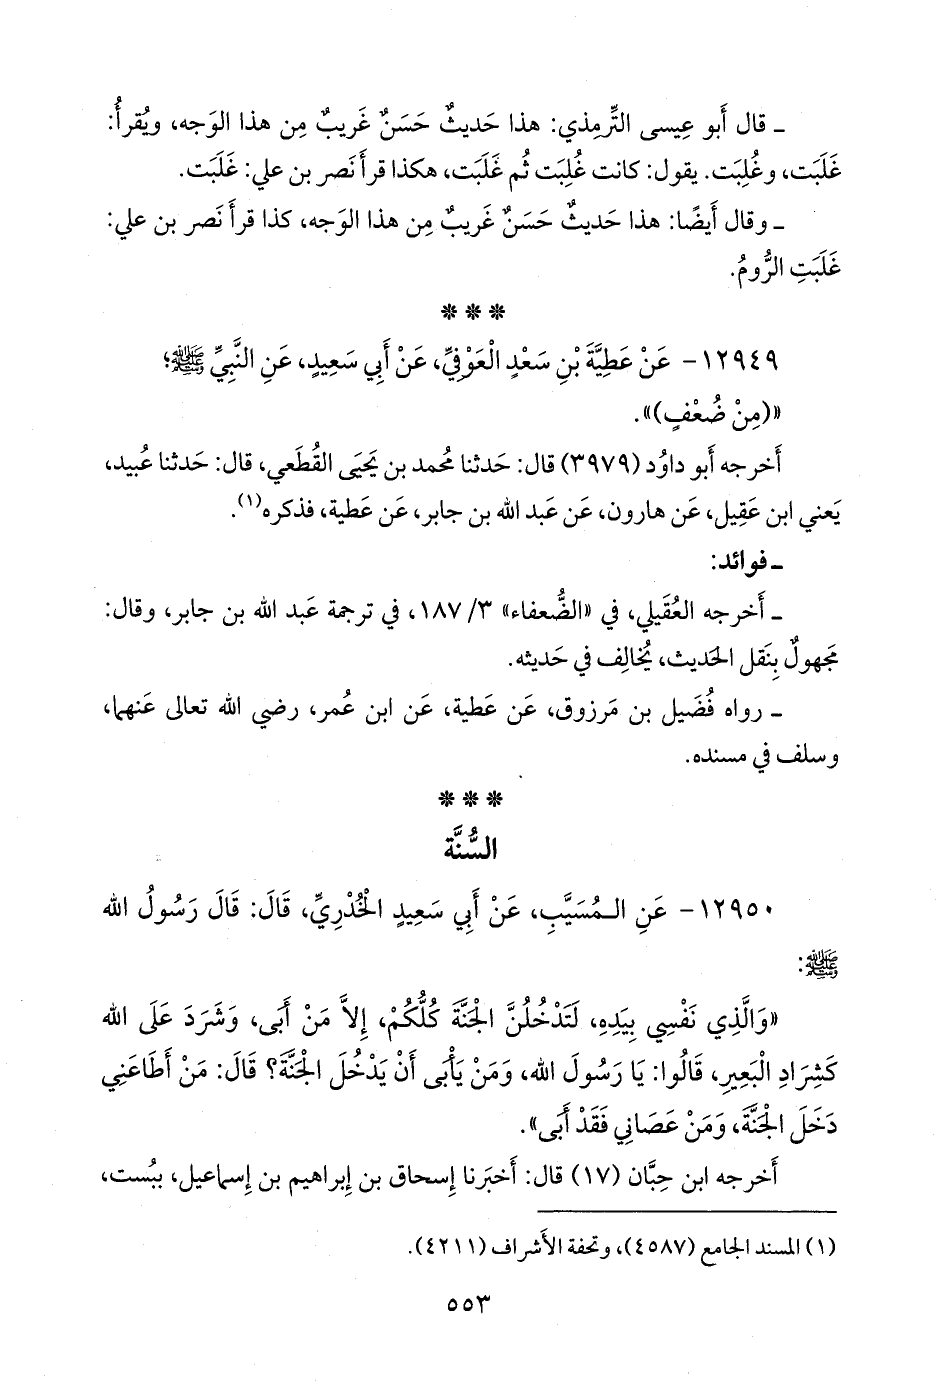 ـ قال أَبو عِيسى التِّرمِذي: هذا حَديثٌ حَسَنٌ غَريبٌ مِن هذا الوَجه، ويُقرأُ:
غَلَبَت، وغُلِبَت. يقول: كانت غُلِبَت ثُم غَلَبَت، هكذا قرأ نَصر بن علي: غَلَبَت.
ـ وقال أَيضًا: هذا حَديثٌ حَسَنٌ غَريبٌ مِن هذا الوَجه، كذا قرأ نَصر بن علي:
غَلَبَتِ الرُّومُ.
* * *
١٢٩٤٩- عَنْ عَطِيَّةَ بْنِ سَعْدٍ الْعَوْفِيِّ، عَنْ أَبِي سَعِيدٍ، عَنِ النَّبِيِّ ﷺ؛
«(مِنْ ضُعْفٍ)».
أَخرجه أَبو داوُد (٣٩٧٩) قال: حَدثنا مُحمد بن يَحيَى القُطَعي، قال: حَدثنا عُبيد،
يَعني ابن عَقِيل، عَن هارون، عَن عَبد الله بن جابر، عَن عَطية، فذكره(١).
ـ فوائد:
ـ أَخرجه العُقَيلي، في «الضُّعفاء» ٣/ ١٨٧، في ترجمة عَبد الله بن جابر، وقال:
مَجهولٌ بِنَقل الحَديث، يُخالِف في حَديثه.
ـ رواه فُضَيل بن مَرزوق، عَن عَطية، عَن ابن عُمر، رضي الله تعالى عَنهما،
وسلف في مسنده.
* * *
السُّنَّة
١٢٩٥٠- عَنِ الـمُسَيَّبِ، عَنْ أَبِي سَعِيدٍ الْخُدْرِيِّ، قَالَ: قَالَ رَسُولُ الله
ﷺ:
«وَالَّذِي نَفْسِي بِيَدِهِ، لَتَدْخُلُنَّ الْجَنَّةَ كُلُّكُمْ، إِلاَّ مَنْ أَبَى، وَشَرَدَ عَلَى الله
كَشِرَادِ الْبَعِيرِ، قَالُوا: يَا رَسُولَ الله، وَمَنْ يَأْبَى أَنْ يَدْخُلَ الْجَنَّةَ؟ قَالَ: مَنْ أَطَاعَنِي
دَخَلَ الْجَنَّةَ، وَمَنْ عَصَانِي فَقَدْ أَبَى».
أَخرجه ابن حِبَّان (١٧) قال: أَخبَرنا إِسحاق بن إِبراهيم بن إِسماعيل، ببُست،
(١) المسند الجامع (٤٥٨٧)، وتحفة الأَشراف (٤٢١١).
٥٥٣